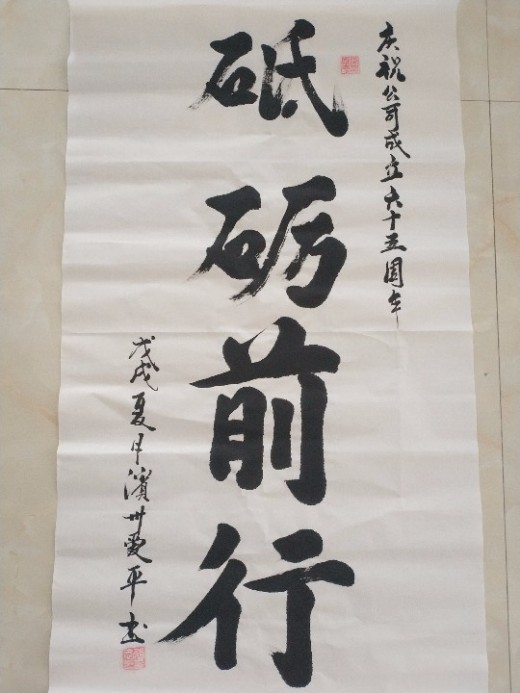 庆祝公司成立六十五周年
砥砺前行
戊戌夏月滨州爱平书